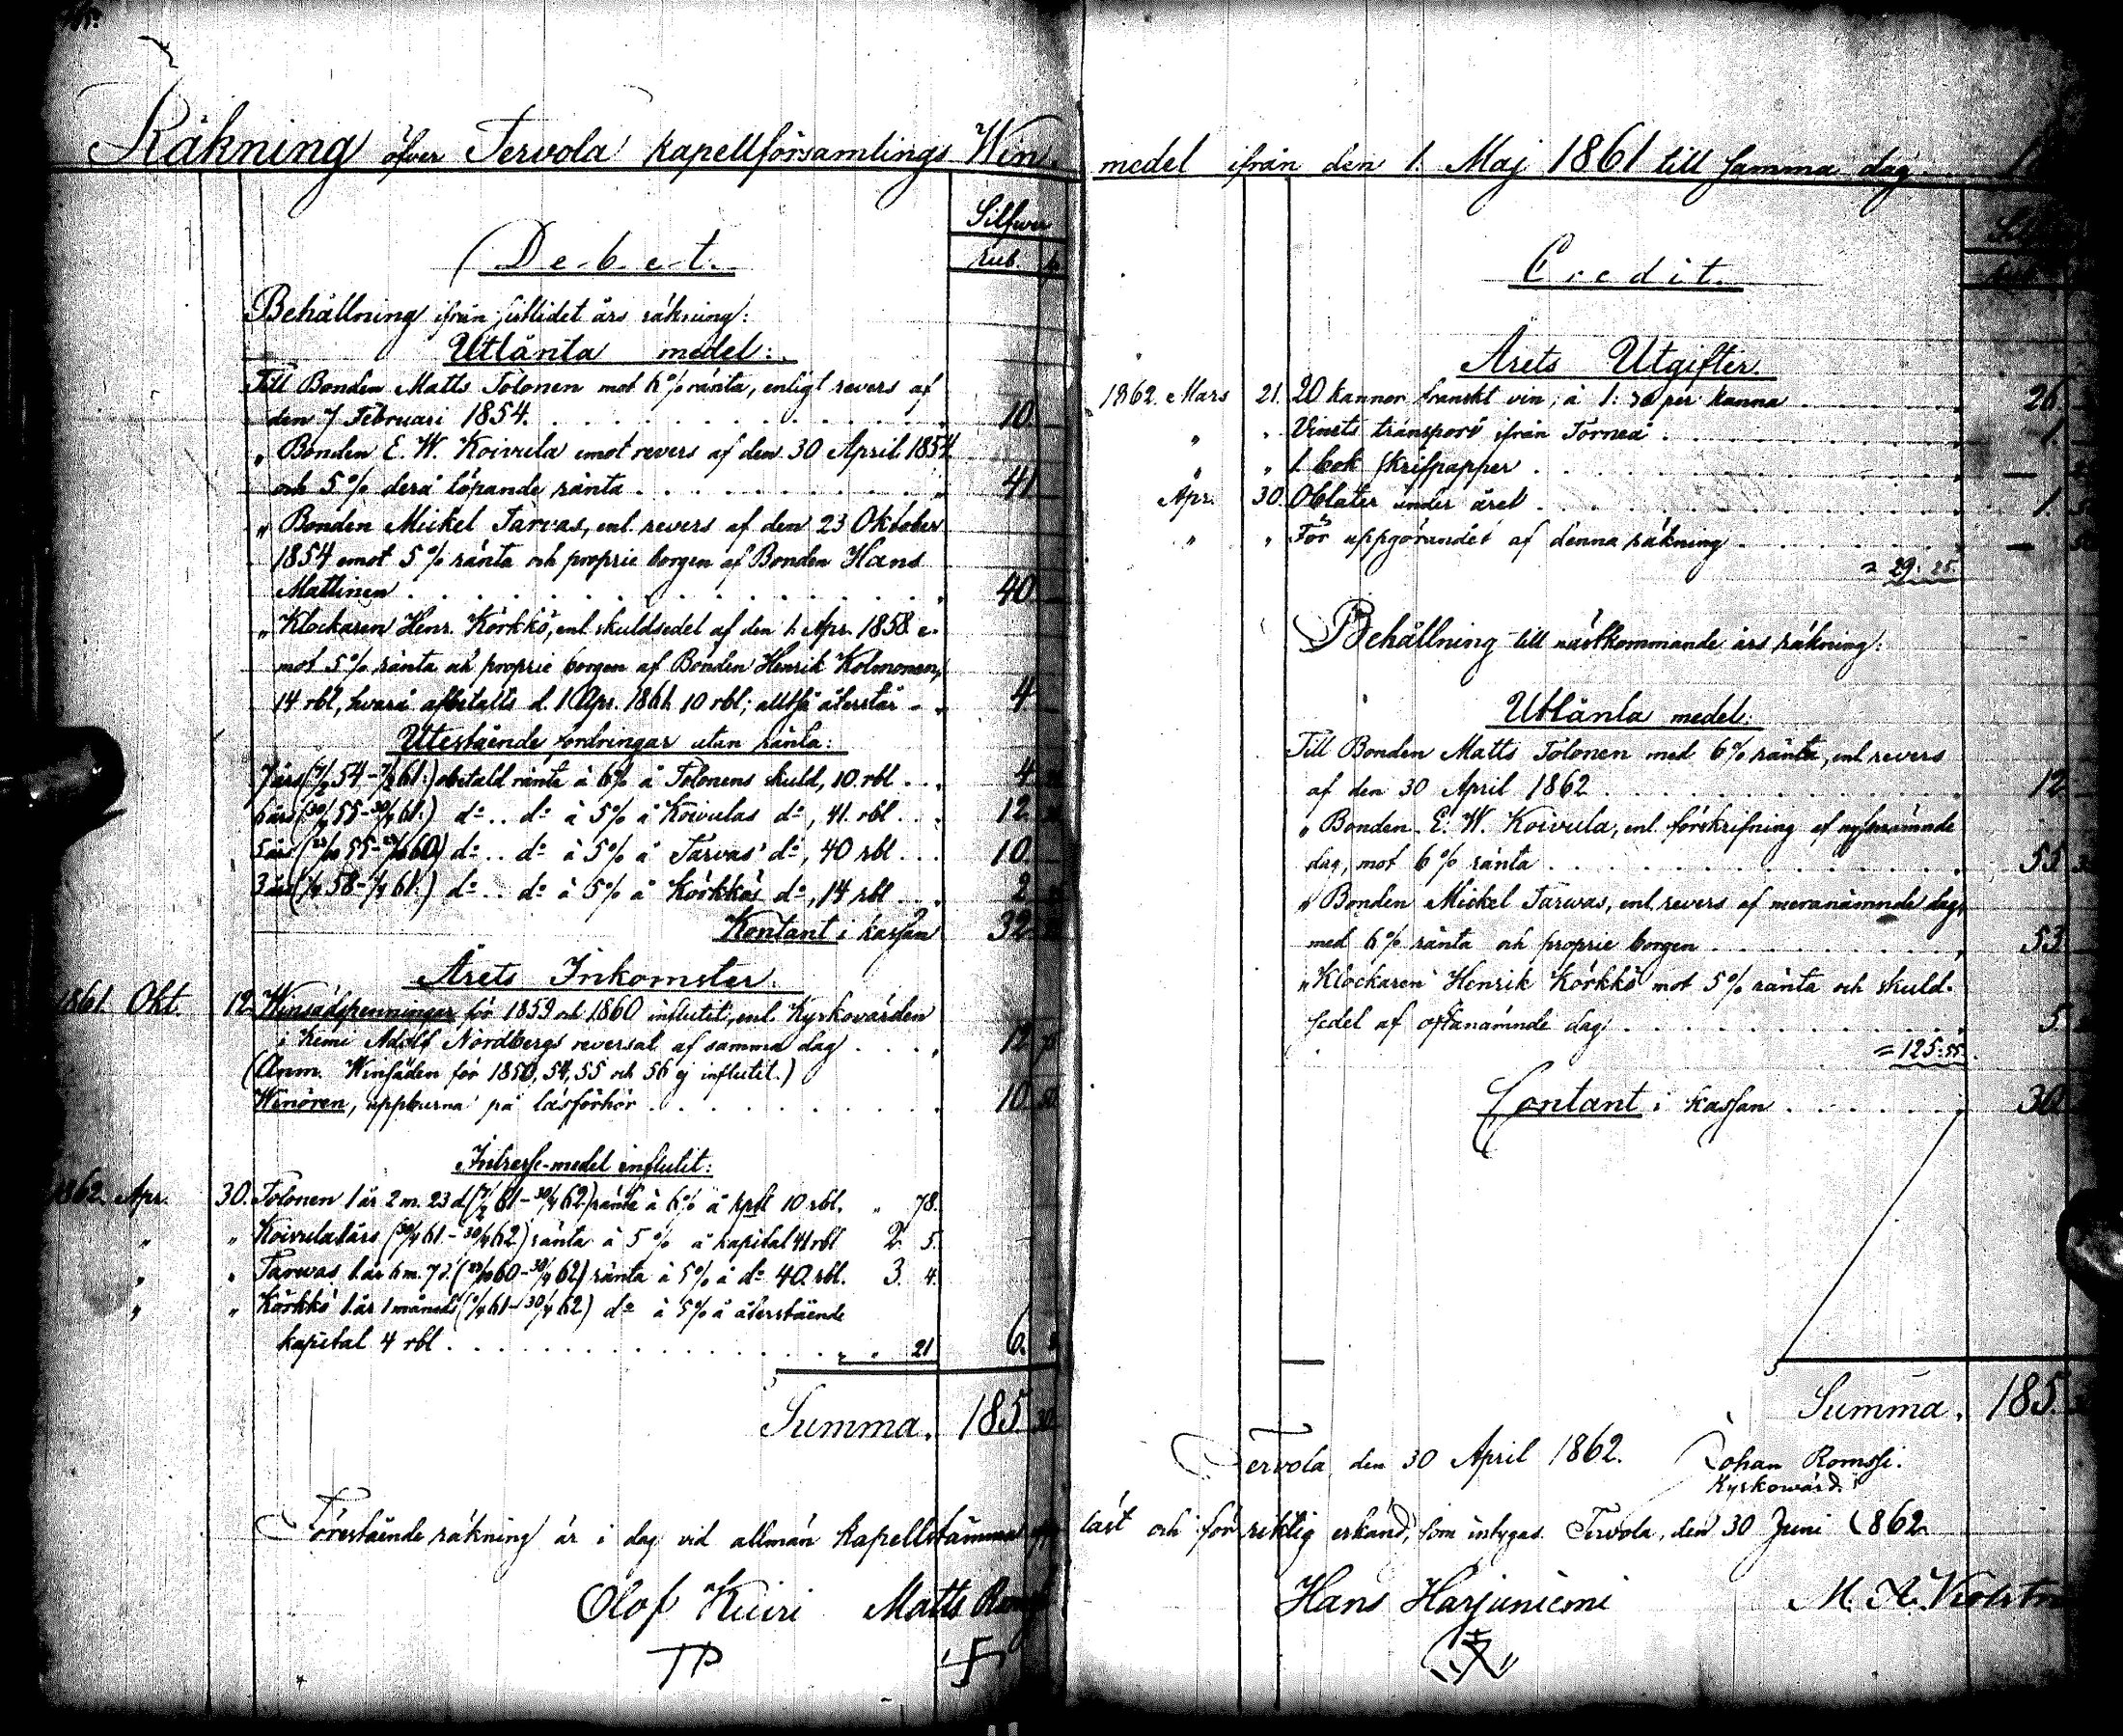 Räkning öfver Tervola kapellförsamlings Win-
Silfver
Debet.
rub. k.
Behållning ifrån förflidet års räkning:
Utlånta medel:
Till Bonden Matts Tolonen mot 6% ränta, enligt revers af
den 7 Februari 1854. 10.
„ Bonden E. W. Koivula emot revers af den 30 April 1854
och 5% derå löpande ränta 41
„ Bonden Mickel Tarvas, enl. revers af den 23 Oktober
1854 emot 5% ränta och proprie borgen af Bonden Hans
Mattinen 40
„ Klockaren Henr. Körkkö, enl. skuldsedel af den 1. Apr. 1858 e-
mot 5% ränta och proprie borgen af Bonden Henrik Kolmonen,
14 rbl, hvarå afbetalts d. 1 Apr. 1861 10 rbl; alltså återstår 4
Utestående fordringar utan ränta:
7 års (7/2 54-7/2 61.) obetald ränta à 6% å Tolonens skuld, 10 rbl 4
6 års (30/4 55-30/4 61.) do do à 5% å Koivulas do, 41 rbl 12
5 års (23/10 55-23/10 60) do do à 5% å Tarvas' do, 40 rbl 10.
3 års (1/4 58-1/4 61.) do do à 5% å Körkkös do, 14 rbl 2
Kontant i kassan 32
Årets Inkomster.
1861. Okt. 12. Winsädspenningar för 1859 och 1860 influtit, enl. Kyrkovärden
i Kemi Adolf Nordbergs reversal af samma dag 12 75
(Anm. Winsäden för 1850, 54, 55 och 56 ej influtit.)
Winören, uppburna på läsförhör 10.
Intresse-medel influtit:
1862. Apr. 30. Tolonen 1 år 2 m. 23 d. (7/2 61-30/4 62) ränta à 6% å kptl 10 rbl. „ 78.
„ „ Koivula 1 års (30/4 61-30/4 62) ränta à 5% å kapital 41 rbl 2. 5.
„ „ Tarwas 1 år 6 m. 7 d. (23/10 60-30/4 62) ränta à 5% å do 40 rbl. 3. 4.
„ „ Körkkö 1 år 1 månads (1/4 61-30/4 62) do à 5% å återstående
kapital 4 rbl „ 21 6.
Summa. 185
Förestående räkning är i dag vid allmän kapellstämma
Olof Kuiri Matts
TP
medel ifrån den 1. Maj 1861 till samma dag
Credit.
Årets Utgifter.
1862. Mars 21. 20 kannor franskt vin, à 1: 30 per kanna 26.
„ „ Vinets transport ifrån Torneå 1.
„ „ 1 bok skrifpapper —
Apr. 30. Oblater under året 1.
„ „ För uppgörandet af denna räkning —
= 29: 25
Behållning till nästkommande års räkning:
Utlånta medel:
Till Bonden Matts Tolonen med 6% ränta, enl revers
af den 30 April 1862 12.
„ Bonden E. W. Koivula, enl. förskrifning af nyssnämnde
dag, mot 6% ränta 55
„ Bonden Mickel Tarwas, enl. revers af meranämnde dag,
med 6% ränta och proprie borgen 53
„ Klockaren Henrik Körkkö mot 5% ränta och skuld-
sedel af oftanämnde dag 5.
= 125: 55.
Contant i kassan 30.
Summa. 185.
Tervola den 30 April 1862. Johan Romssi.
Kyrkowärd.
läst och för riktig erkänd, som intygas. Tervola, den 30 Juni 1862.
Hans Harjuniemi M. A.